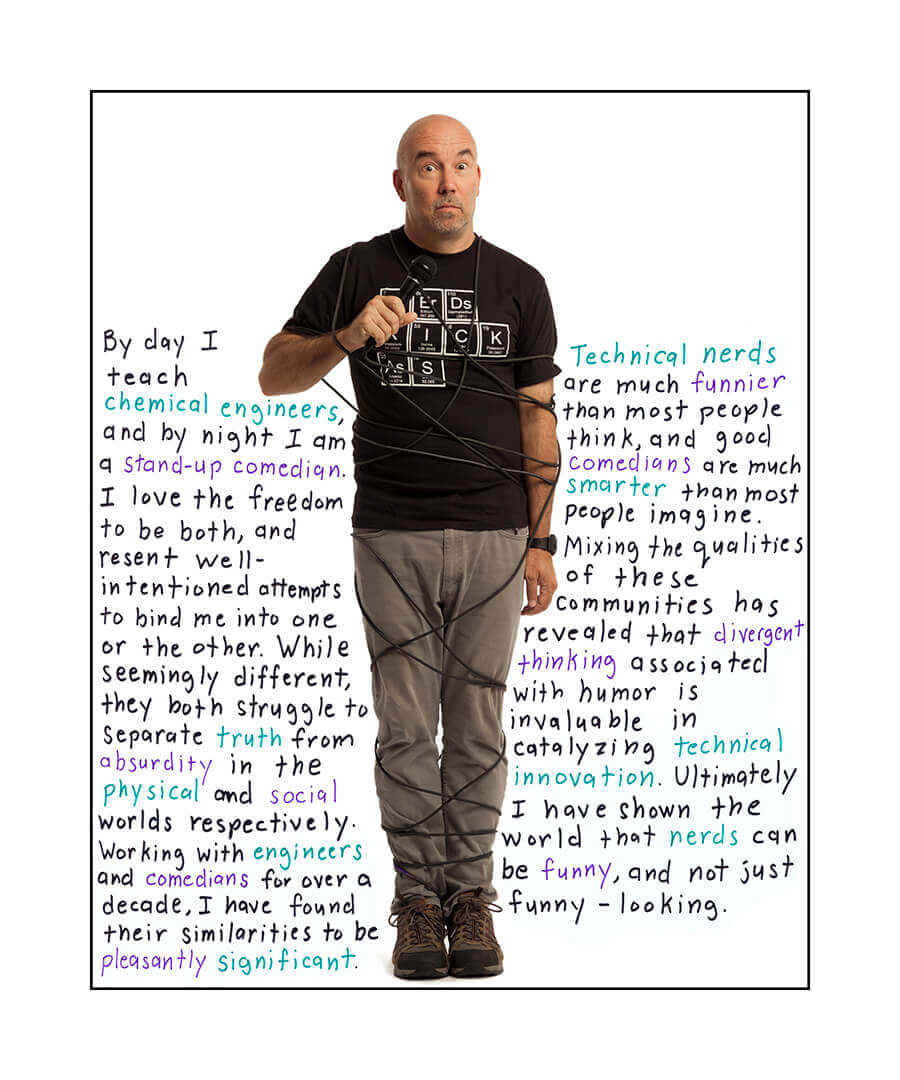 ErDs
ICK
AsS
By day I
teach
chemical engineers,
and by night I am
a stand-up comedian.
I love the freedom
to be both, and
resent well-
intentioned attempts
to bind me into one
or the other. While
seemingly different,
they both struggle to
separate truth from
absurdity in the
physical and social
worlds respectively.
Working with engineers
and comedians for over a
decade, I have found
their similarities to be
pleasantly significant.
Technical nerds
are much funnier
than most people
think, and good
comedians are much
smarter than most
people imagine.
Mixing the qualities
of these
communities has
revealed that divergent
thinking associated
with humor is
invaluable in
catalyzing technical
innovation. Ultimately
I have shown the
world that nerds can
be funny, and not just
funny-looking.